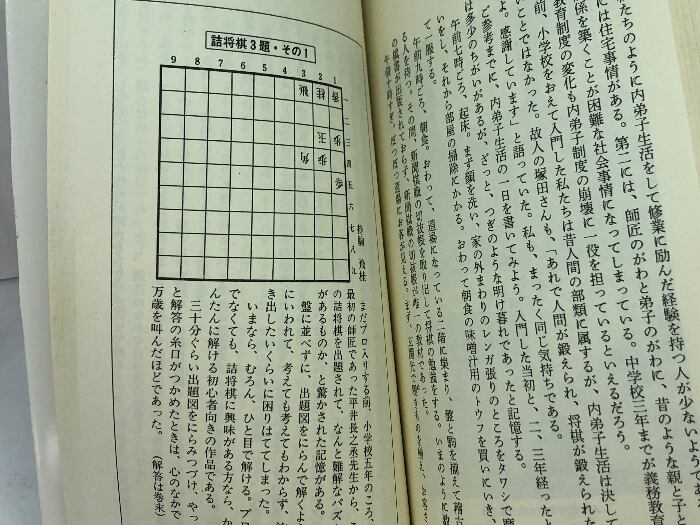 たちのように内弟子生活をして修業に励んだ経験を持つ人が少ないよう
には住宅事情がある。第二には、師匠のがわと弟子のがわに、昔のような親と子と
係を築くことが困難な社会事情になってしまっている。中学校三年までが義務教育
教育制度の変化も内弟子制度の崩壊に一役を担っているといえるだろう。
前、小学校をおえて入門した私たちは昔人間の部類に属するが、内弟子生活は決し
いことではなかった。故人の塚田さんも、「あれで人間が鍛えられ、将棋が鍛えられた
よ。感謝しています」と語っていた。私も、まったく同じ気持ちである。
ご参考までに、内弟子生活の一日を書いてみよう。入門した当初と、二、三年経ったと
は多少のちがいがあるが、ざっと、つぎのような明け暮れであったと記憶する。
午前七時ごろ、起床。まず顔を洗い、家の外まわりのレンガ張りのところをタワシで
いをし、それから部屋の掃除にかかる。おわって朝食の味噌汁用のトウフを買いにいき、
て一服する。
午前九時ごろ、朝食。おわって、道場になっている二階に集まり、盤と駒を揃えて
る人を待つ。その間、新聞棋戦の切抜帳を取り出して将棋の勉強をする。いまのように
の棋書が出版されておらず、新聞棋戦の切抜帳が唯一の教材であった。
午前十時すぎ、ぽつぽつ道場にお客が見える。まず、玄関
詰将棋3題・その1
9 8 7 6 5 4 3 2 1
一 二 三 四 五 六 七 八 九
香 桂
歩
玉
歩 角
歩
持駒 飛桂
まだプロ入りする前、小学校五年のころ、
最初の師匠であった平井長之丞先生から、
の詰将棋を出題されて、なんと難解なパズ
があるものか、と驚かされた記憶がある。
盤に並べずに、出題図をにらんで解くよ
にいわれて、考えても考えてもわからず、
き出したいくらいに困りはててしまった。
いまなら、むろん、ひと目で解ける。プロ
でなくても、詰将棋に興味がある方なら、か
んたんに解ける初心者向きの作品である。
三十分ぐらい出題図をにらみつづけ、やっ
と解答の糸口がつかめたときは、心のなかで
万歳を叫んだほどであった。 (解答は巻末)